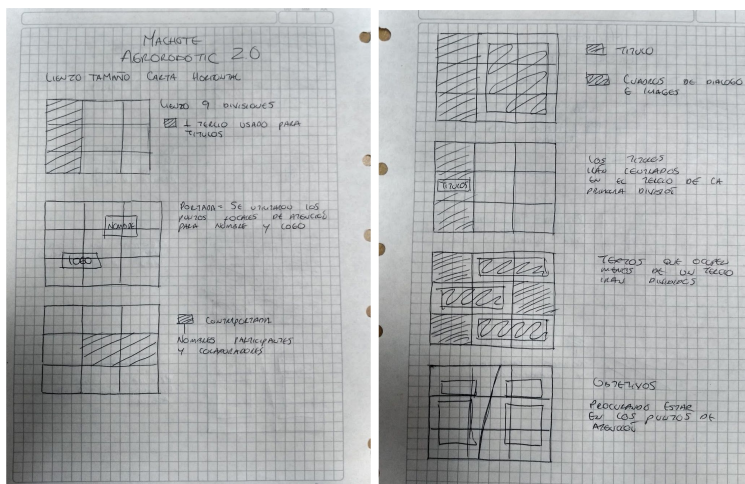 MACHOTE
AGROROBOTIC 2.0
LIENZO TAMAÑO CARTA HORIZONTAL
LIENZO 9 DIVISIONES
1 TERCIO USADO PARA
TITULOS
PORTADA = SE UTILIZARON LOS
PUNTOS FOCALES DE ATENCIÓN
PARA NOMBRE Y LOGO
NOMBRE
LOGO
CONTRAPORTADA
NOMBRES PARTICIPANTES
Y COLABORADORES
TITULO
CUADROS DE DIALOGO
E IMAGES
LOS TITULOS
IRAN CENTRADOS
EN EL TERCIO DE LA
PRIMERA
TITULOS
QUE OCUPEN
MENOS DE UN TERCIO
IRAN DIVIDIDOS
OBJETIVOS
PROCURANDO ESTAR
EN LOS PUNTOS DE
ATENCIÓN